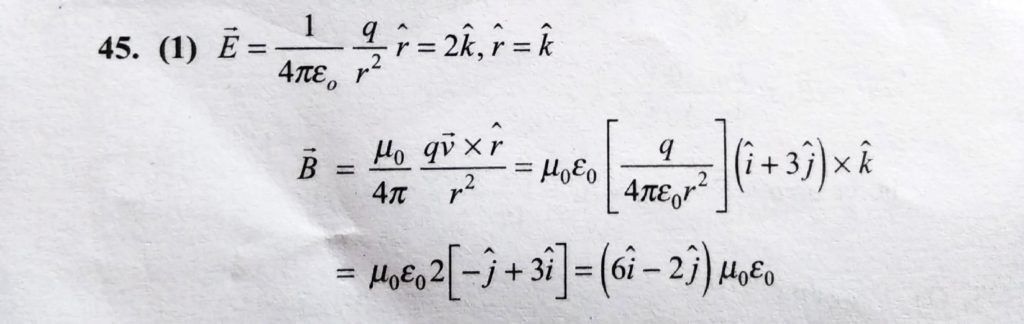 45. (1) \vec{E} = \frac{1}{4\pi\varepsilon_o} \frac{q}{r^2} \hat{r} = 2\hat{k}, \hat{r} = \hat{k}
\vec{B} = \frac{\mu_0}{4\pi} \frac{q\vec{v} \times \hat{r}}{r^2} = \mu_0\varepsilon_0 \left[ \frac{q}{4\pi\varepsilon_0 r^2} \right] (\hat{i} + 3\hat{j}) \times \hat{k}
= \mu_0\varepsilon_0 2 [-\hat{j} + 3\hat{i}] = (6\hat{i} - 2\hat{j}) \mu_0\varepsilon_0